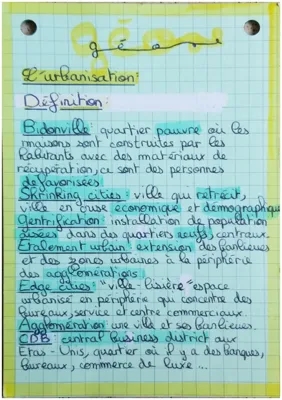 géo
L'urbanisation:
Définition:
Bidonville: quartier pauvre où les
maisons sont construites par les
habitants avec des matériaux de
récupération, ce sont des personnes
défavorisées
Shrinking cities: ville qui rétrécit,
ville en crise économique et démographique
Gentrification: installation de population
aisées dans des quartiers neufs, centraux.
Étalement urbain: extension des banlieues
et des zones urbaines à la périphérie
des agglomérations.
Edge cities: "ville-lisière" espace
urbanisé en périphérie qui concentre des
bureaux, service et centre commerciaux.
Agglomération une ville et ses banlieues.
CBD: central business district aux
Etats-Unis, quartier où il y a des banques,
bureaux, commerce de luxe ...